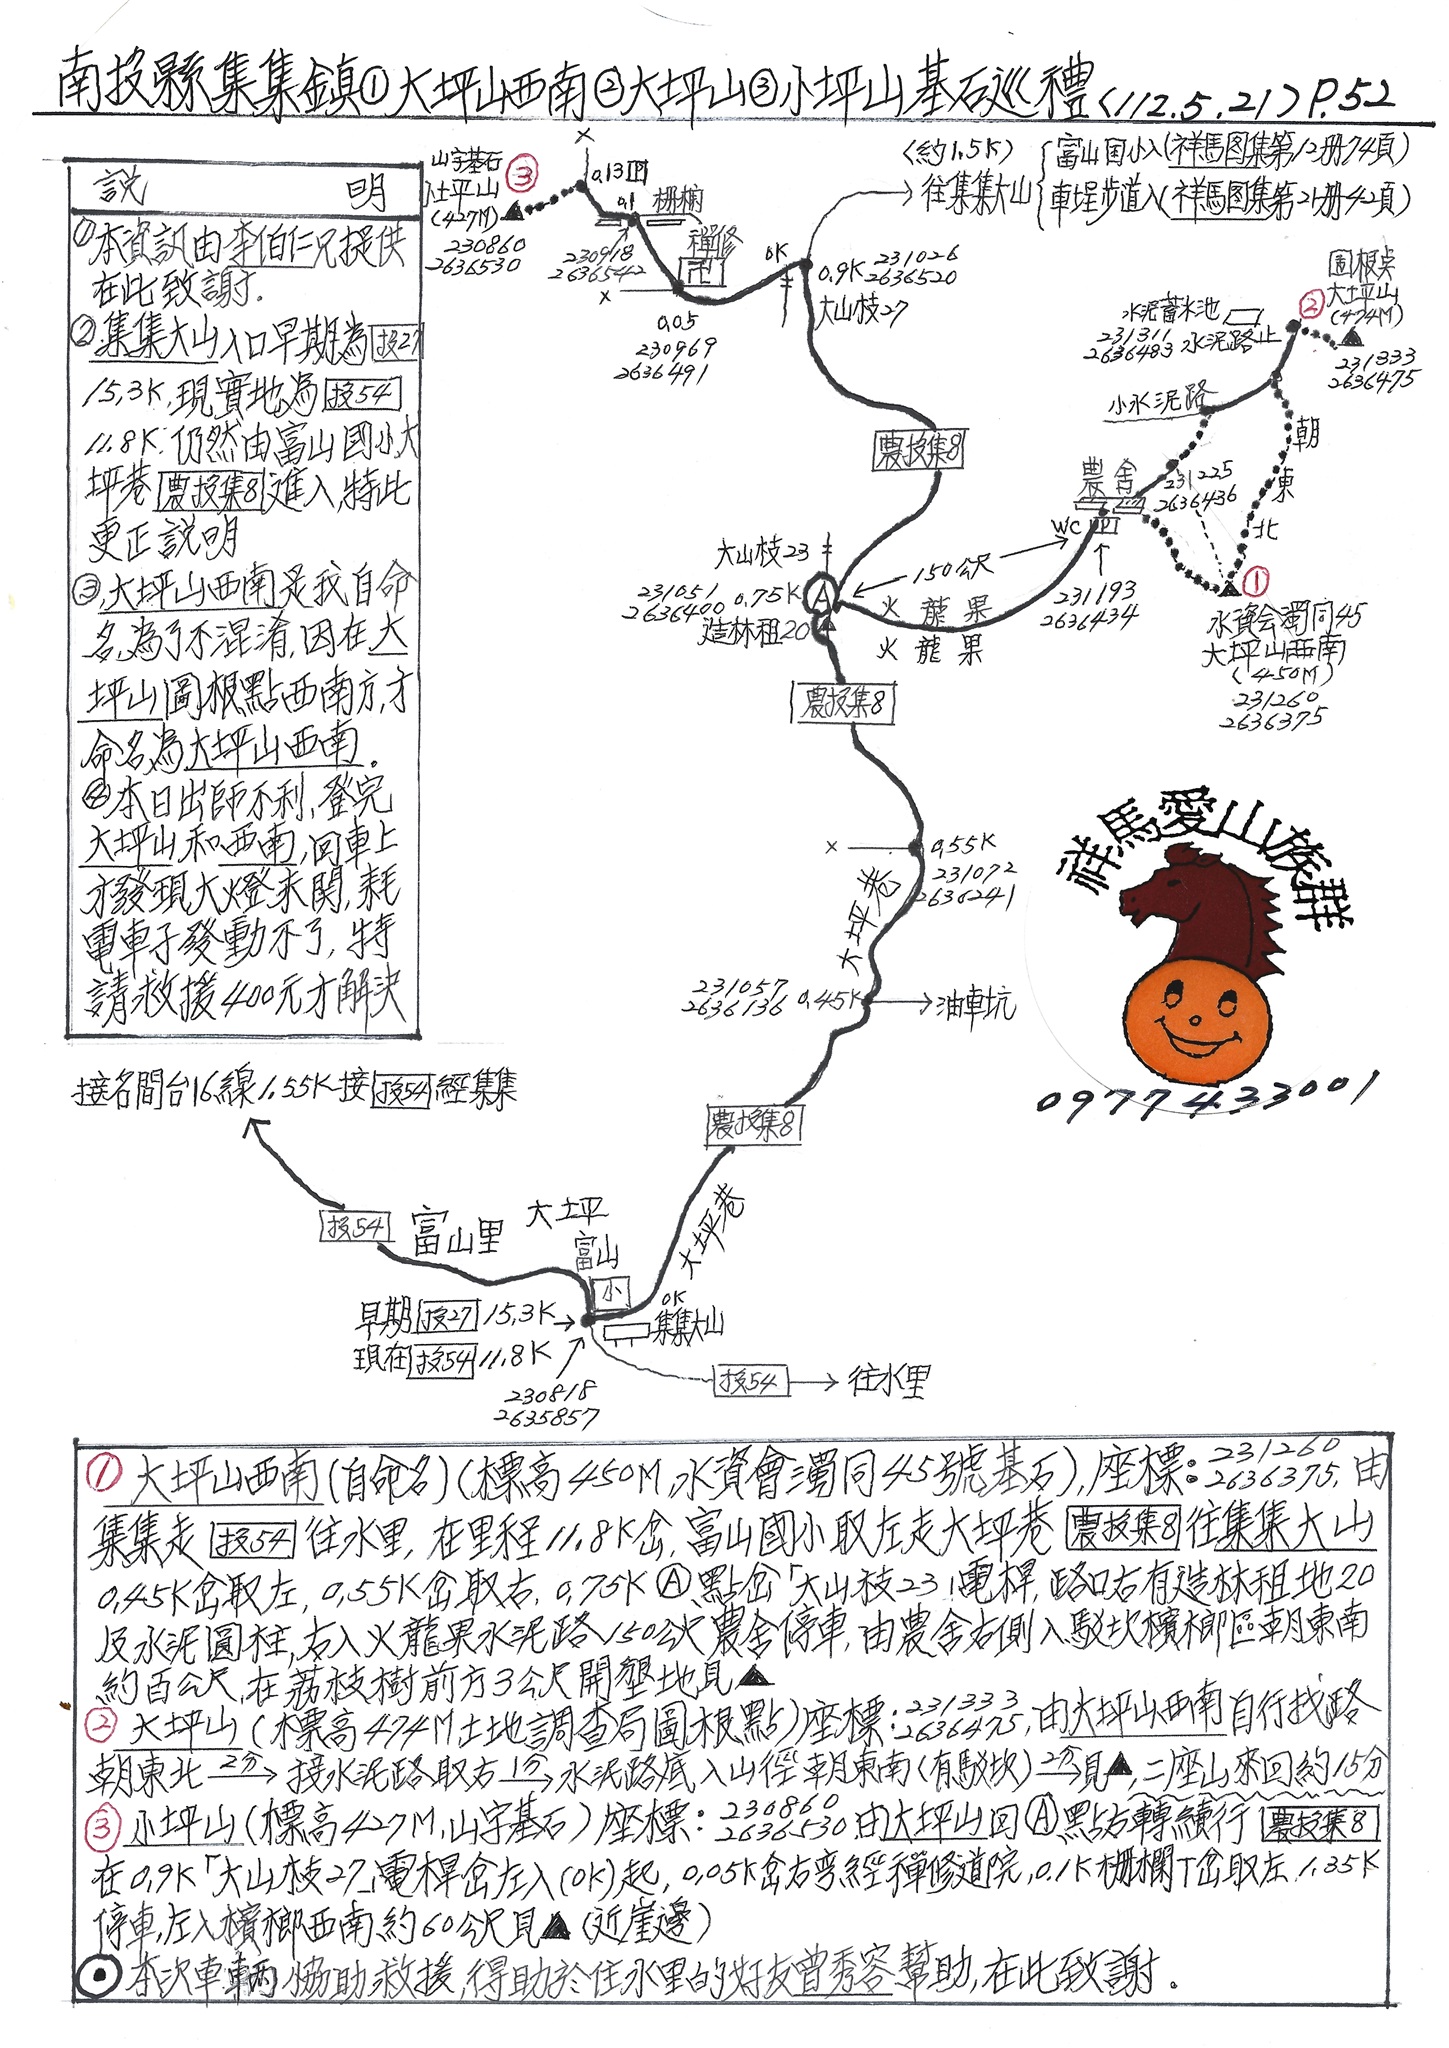 南投縣集集鎮①大坪山西南②大坪山③小坪山基石巡禮<112.5.21>P.52
說 明
①本資訊由李伯仁兄提供
在此致謝.
②集集大山入口早期為投27
15.3K,現實地為投54
11.8K.仍然由富山國小大
坪巷農投集8進入,特此
更正說明
③大坪山西南是我自命
名,為了不混淆,因在大
坪山圖根點西南方,才
命名為大坪山西南.
④本日出師不利,登完
大坪山和西南,回車上
才發現大燈未関,耗
電車子發動不了,特
請救援400元才解決
山字基石
小坪山
(427M)
230860
2636530
③
×
0.13
0.1
柵欄
230918
2636542
禪修
卍
×
0.05
230969
2636491
0K
0.9K
231026
2636520
大山枝27
<約1.5K>
往集集大山
富山国小入(祥馬图集第12册74頁)
車埕步道入(祥馬图集第21册42頁)
圖根点
大坪山
(474M)
②
231333
2636475
水泥蓄水池
231311
2636483
水泥路止
小水泥路
朝東北
農投集8
農舍
231225
2636436
WC
150公尺
231193
2636434
①
水資会濁同45
大坪山西南
(450M)
231260
2636375
大山枝23
231051
2636400
0.75K
A
造林租20
火龍果
火龍果
農投集8
×
0.55K
231072
2636241
大坪巷
231057
2636136
0.45K
油車坑
祥馬愛山族群
0977433001
農投集8
大坪巷
接名間台16線1.55K接投54經集集
投54
富山里
大坪
富山
小
0K
集集大山
早期投27 15.3K
現在投54 11.8K
230818
2635857
投54
往水里
①大坪山西南(自命名)(標高450M,水資會濁同45號基石),座標:231260 2636375,由
集集走投54往水里,在里程11.8K岔,富山國小取左走大坪巷農投集8往集集大山
0.45K岔取左,0.55K岔取右,0.75KⒶ點岔「大山枝23」電桿,路口右有造林租地20
及水泥圓柱,右入火龍果水泥路150公尺農舍停車,由農舍右側入駁坎檳榔區朝東南
約百公尺,在荔枝樹前方3公尺開墾地見▲
②大坪山(標高474M土地調查局圖根點)座標:231333 2636475,由大坪山西南自行找路
朝東北2分→接水泥路取右1分→水泥路底入山徑朝東南(有駁坎)2分→見▲,二座山來回約15分
③小坪山(標高427M,山字基石)座標:230860 2636530由大坪山回Ⓐ點右轉續行農投集8
在0.9K「大山枝27」電桿岔左入(0K)起,0.05K岔右弯經禪修道院,0.1K柵欄T岔取左1.35K
停車,左入檳榔西南約60公尺見▲(近崖邊)
⊙本次車輛協助救援,得助於住水里的好友曾秀容幫助,在此致謝.